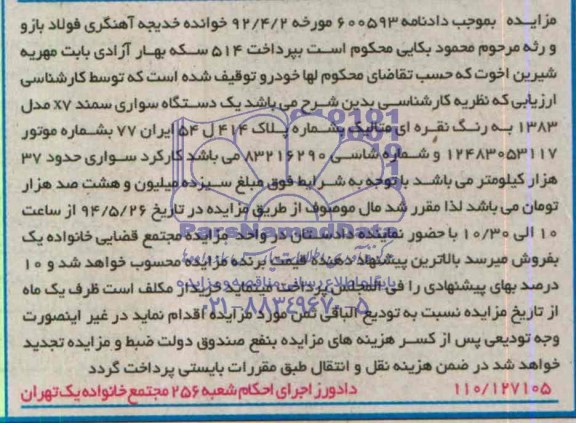 مزایده بموجب دادنامه ۶۰۰۵۹۳ مورخه ۹۲/۴/۲ خوانده خدیجه آهنگری فولاد بازو
و رثه مرحوم محمود بکایی محکوم است بپرداخت ۵۱۴ سکه بهار آزادی بابت مهریه
شیرین اخوت که حسب تقاضای محکوم لها خودرو توقیف شده است که توسط کارشناسی
ارزیابی که نظریه کارشناسی بدین شرح می باشد یک دستگاه سواری سمند x۷ مدل
۱۳۸۳ به رنگ نقره ای متالیک بشماره پلاک ۴۱۴ ل ۵۴ ایران ۷۷ بشماره موتور
۱۲۴۸۳۰۵۳۱۱۷ و شماره شاسی ۸۳۲۱۶۲۹۰ می باشد کارکرد سواری حدود ۳۷
هزار کیلومتر می باشد با توجه به شرایط فوق مبلغ سیزده میلیون و هشت صد هزار
تومان می باشد لذا مقرر شد مال موصوف از طریق مزایده در تاریخ ۹۴/۵/۲۶ از ساعت
۱۰ الی ۱۰/۳۰ با حضور نماینده دادستان در واحد مزایده مجتمع قضایی خانواده یک
بفروش میرسد بالاترین پیشنهاد دهنده قیمت برنده مزایده محسوب خواهد شد و ۱۰
درصد بهای پیشنهادی را فی المجلس پرداخت مینماید خریدار مکلف است ظرف یک ماه
از تاریخ مزایده نسبت به تودیع الباقی ثمن مورد مزایده اقدام نماید در غیر اینصورت
وجه تودیعی پس از کسر هزینه های مزایده بنفع صندوق دولت ضبط و مزایده تجدید
خواهد شد در ضمن هزینه نقل و انتقال طبق مقررات بایستی پرداخت گردد
۱۱۰/۱۲۷۱۰۵ دادورز اجرای احکام شعبه ۲۵۶ مجتمع خانواده یک تهران
ParsNamadData
۰۲۱-۸۸۳۴۹۶۷۰-۵